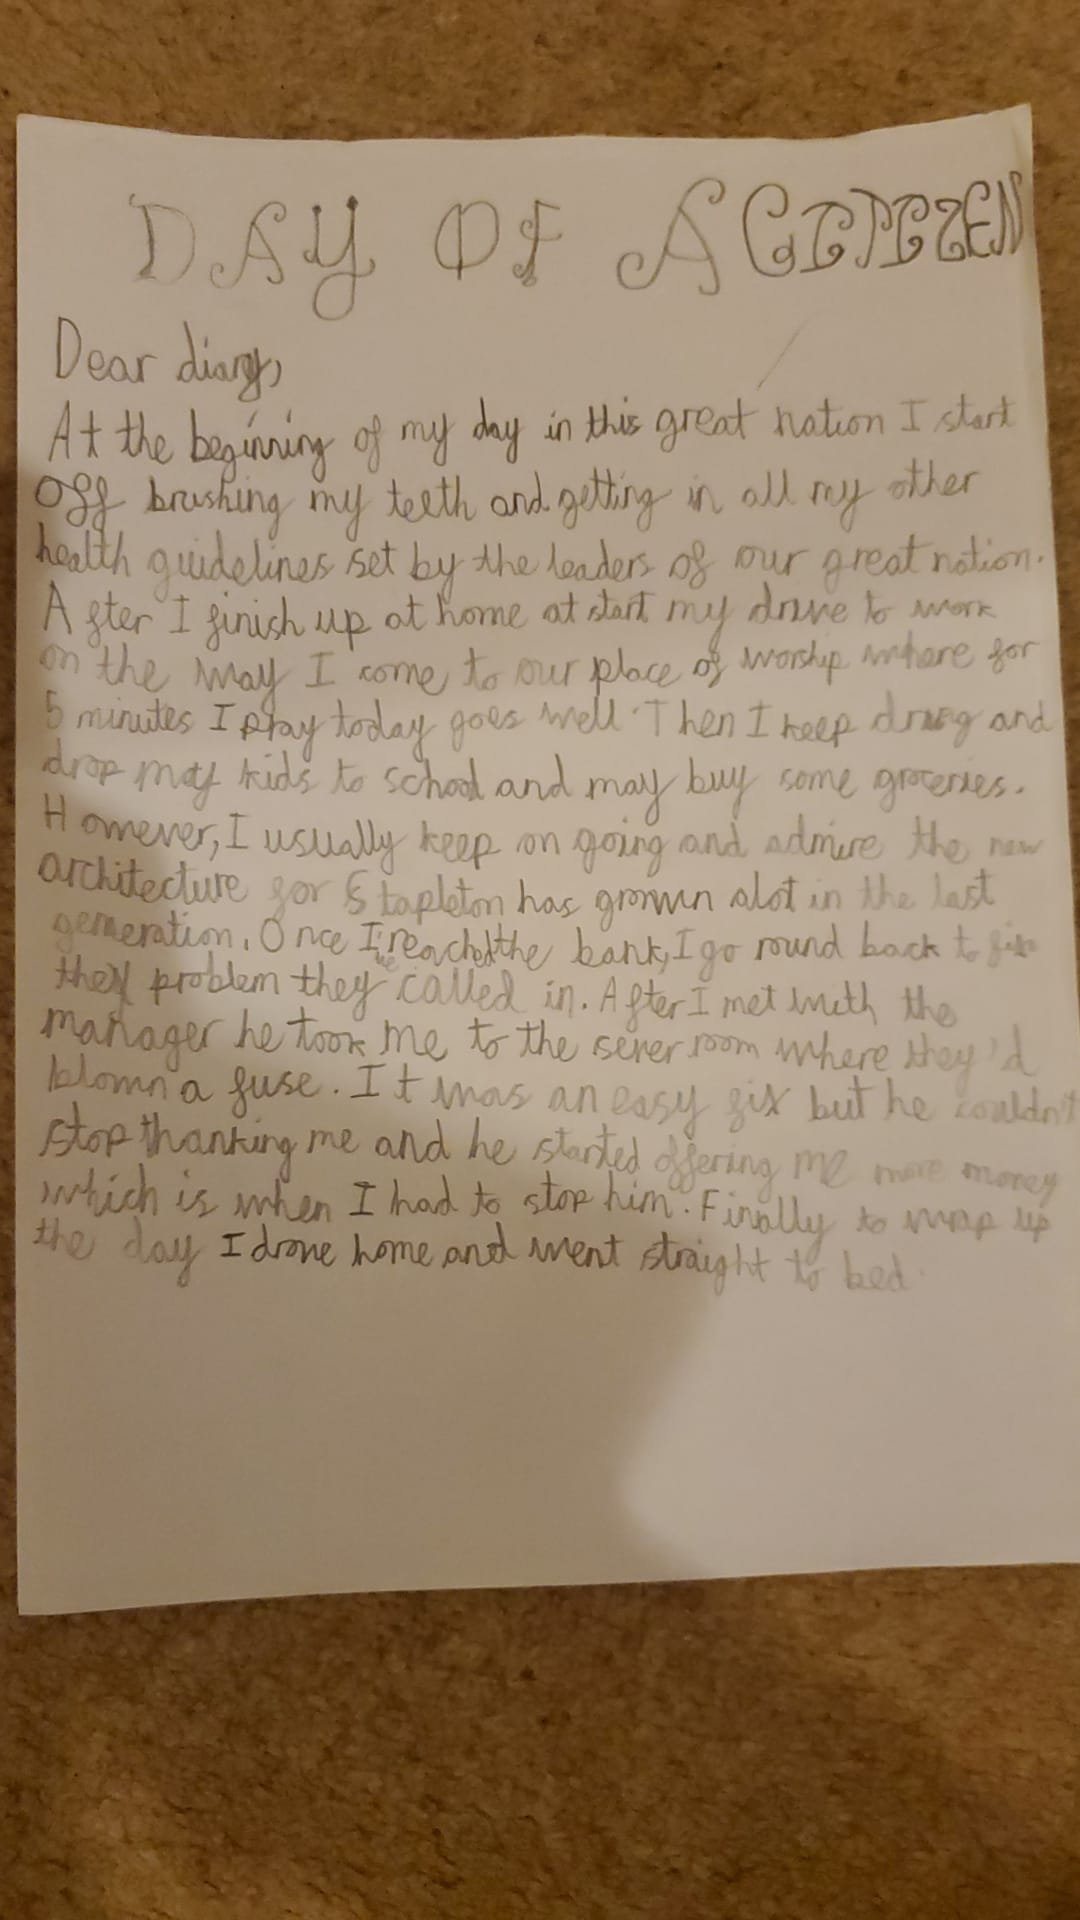 DAY OF A CITIZEN
Dear diary,
At the beginning of my day in this great nation I start
off brushing my teeth and getting in all my other
health guidelines set by the leaders of our great nation.
After I finish up at home at start my drive to work
on the way I come to our place of worship where for
5 minutes I pray today goes well. Then I keep and
drop my kids to school and may buy some groceries.
However, I usually keep on going and admire the new
architecture for Stapleton has grown alot in the last
generation. Once I reached the bank, I go round back to fix
the problem they called in. After I met with the
manager he took me to the server room where they'd
blown a fuse. It was an easy fix but he couldn't
stop thanking me and he started offering me more money
which is when I had to stop him. Finally to wrap up
the day I drove home and went straight to bed.